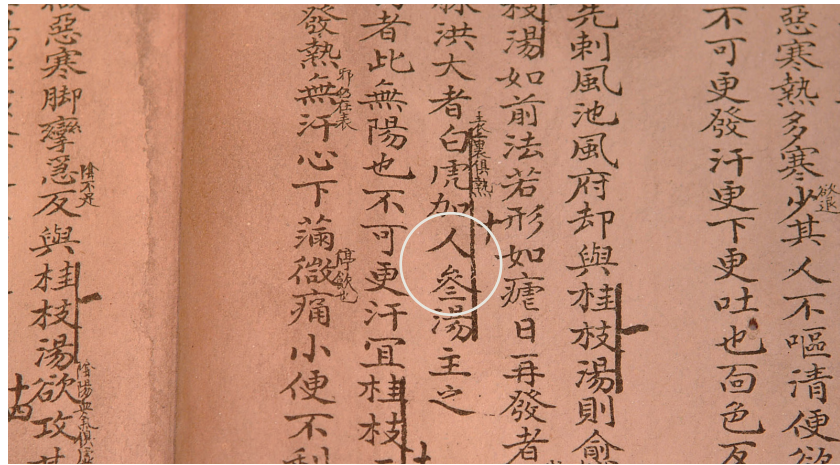 惡寒熱多寒少其人不嘔清便欲
欲退
不可更發汗更下更吐也面色反
先刺風池風府却與桂枝湯則愈
枝湯如前法若形如瘧日再發者
十
脉洪大者白虎加人參湯主之
表裏俱熱
者此無陽也不可更汗冝桂枝
發熱無汗心下滿微痛小便不利
邪氣在表
停飲也
惡寒脚攣急反與桂枝湯欲攻其
陰不足
十四